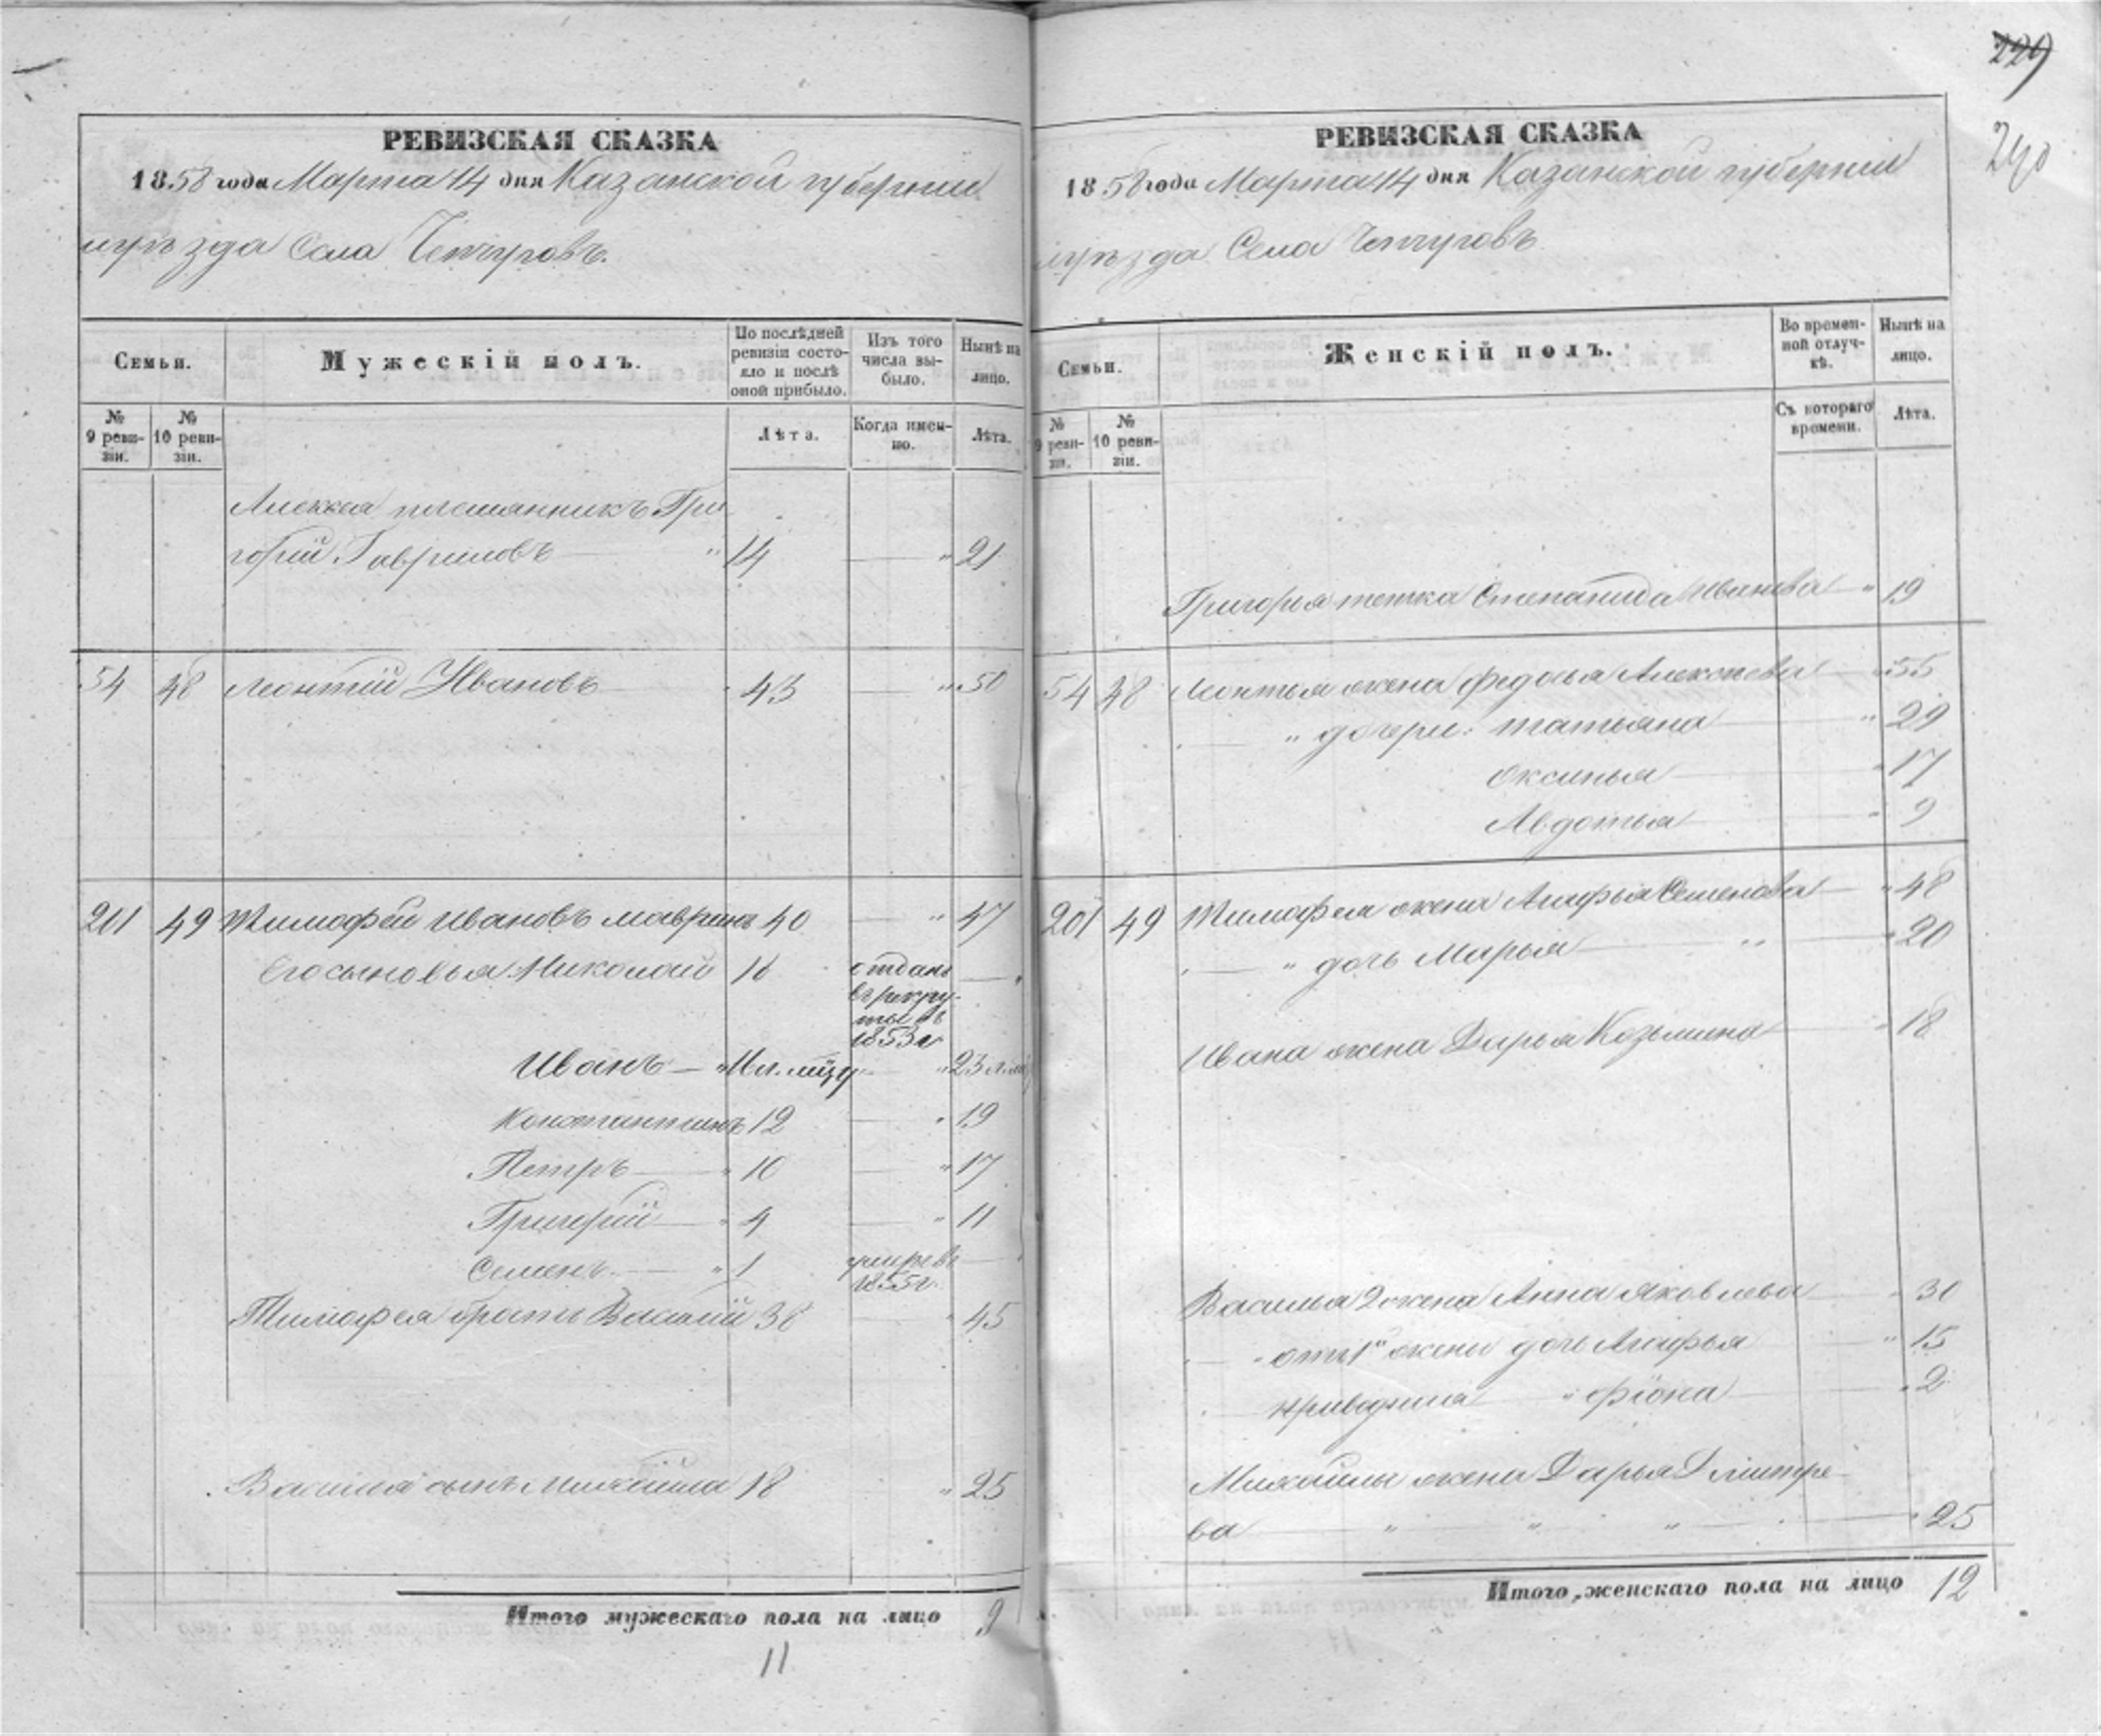 229
240
РЕВИЗСКАЯ СКАЗКА
1858 года Марта 14 дня Казанской губернии
уѣзда Села Чепчуговъ.
Семьи.
Мужескій полъ.
По послѣдней ревизіи состояло и послѣ оной прибыло.
Изъ того числа выбыло.
Нынѣ на лицо.
№ 9 ревизіи.
№ 10 ревизіи.
Лѣта.
Когда именно.
Лѣта.
Алексея племянникъ Гри
горій Гавриловъ 14 — " 21
54 48 Леонтій Ивановъ 43 — " 50
201 49 Тимофей Ивановъ Мавринъ 40 — " 47
Его сыновья Николай 16 отданъ —
въ рекру-
ты въ
1853 г
Иванъ — 23
Константинъ 12 — " 19
Петръ — " 10 — " 17
Григорій — " 4 — " 11
Семенъ — " 1 умре въ —
1855 г.
Тимофея братъ Василій 38 — " 45
Василья сынъ Михайла 18 " 25
Итого мужескаго пола на лицо 9
11
РЕВИЗСКАЯ СКАЗКА
1858 года Марта 14 дня Казанской губернии
уѣзда Села Чепчуговъ
Семьи.
Женскій полъ.
Во временной отлучкѣ.
Нынѣ на лицо.
№ 9 ревизіи.
№ 10 ревизіи.
Съ котораго времени.
Лѣта.
Григорья тетка Степанида Иванова — " 19
54 48 Леонтья жена Федосья Алексеева — " 55
— " дочери: Татьяна — " 29
Оксинья — " 17
Авдотья — " 9
201 49 Тимофея жена Агафья Семенова — " 48
— " дочь Марья — " 20
Ивана жена Дарья Козьмина — " 18
Василья 2 жена Анна Яковлева — " 30
— " отъ 1й жены дочь Агафья — " 15
— " Фіона — " 2
Михайлы жена Дарья Дмитре-
ва — " — " — " — " 25
Итого женскаго пола на лицо 12